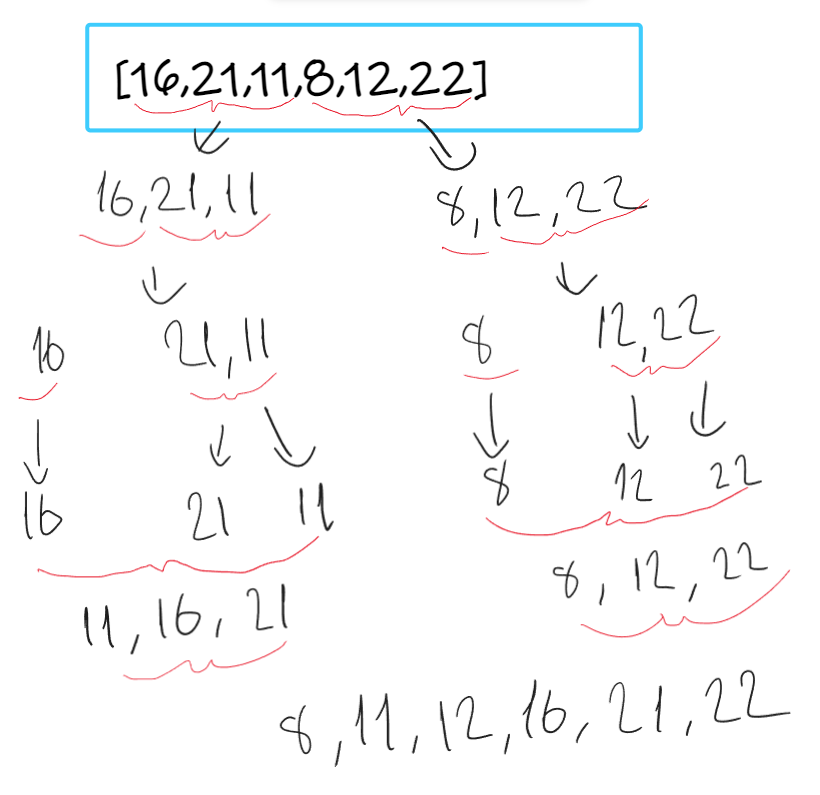 [16,21,11,8,12,22]
16,21,11 8,12,22
16 21,11 8 12,22
16 21 11 8 12 22
11,16,21 8,12,22
8,11,12,16,21,22